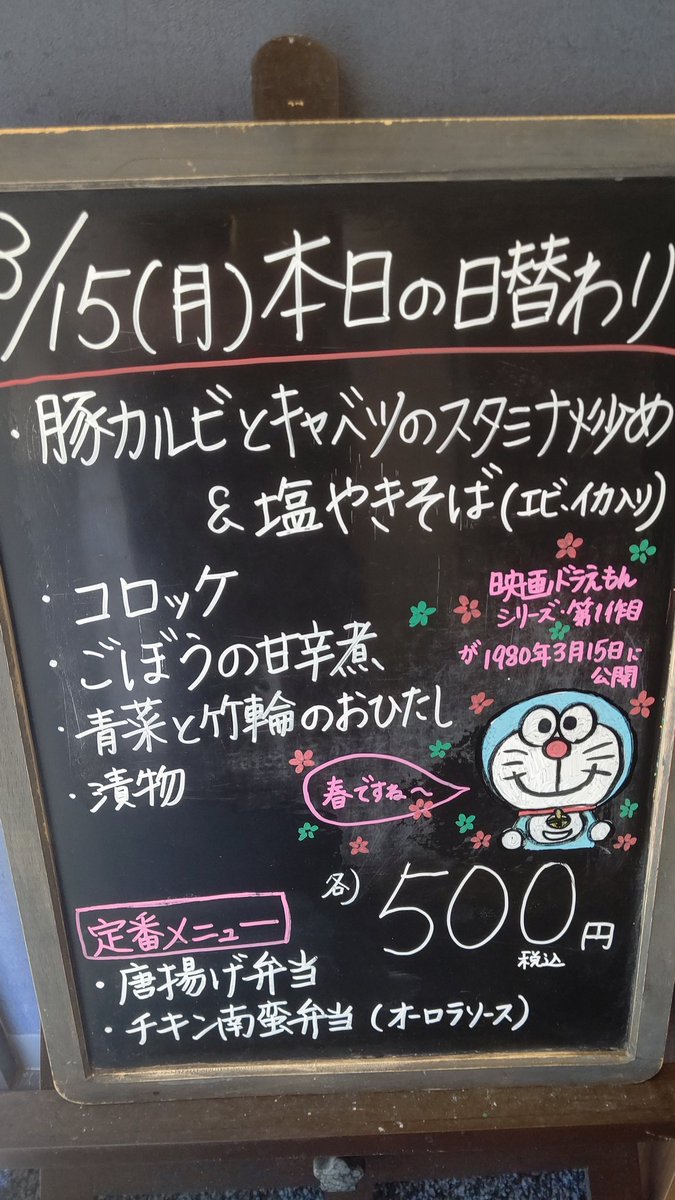 3/15(月)本日の日替わり
・豚カルビとキャベツのスタミナ炒め
&塩やきそば(エビ・イカ入り)
・コロッケ
・ごぼうの甘辛煮
・青菜と竹輪のおひたし
・漬物
映画ドラえもん
シリーズ・第1作目
が1980年3月15日に
公開
春ですね〜
各)500円
税込
定番メニュー
・唐揚げ弁当
・チキン南蛮弁当(オーロラソース)